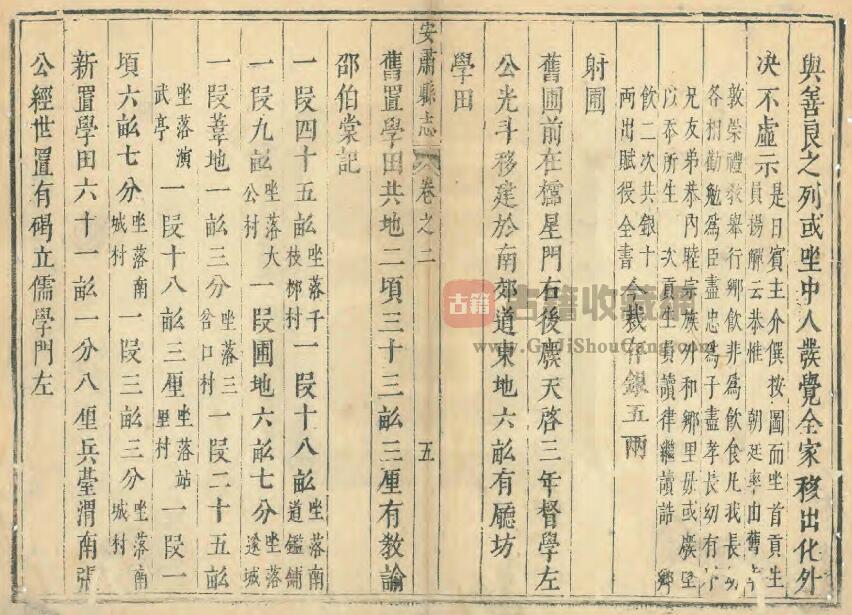 與善良之列或坐中人發覺全家移出化外
决不虛示是日賓主介僎按圖而坐首貢生
員揚觶云恭惟 朝廷率由舊
敦崇禮教舉行鄉飲非爲飲食凡我長
各相勸勉爲臣盡忠爲子盡孝長幼有
兄友弟恭內睦宗族外和鄉里毋或廢墜
以忝所生 次貢生員讀律繼讀誥
飲二次共銀十
兩出賦役全書今裁存銀五兩
射圃
舊圃前在櫺星門右後廢天啓三年督學左
公光斗移建於南郊道東地六畝有廳坊
學田
安肅縣志 卷之二 五
舊置學田共地二頃三十三畝三厘有教諭
邵伯棠記
一段四十五畝坐落千枝栁村一段十八畝坐落南道鑑鋪
一段九畝坐落大公村一段圃地六畝七分坐落遂城
一段葦地一畝三分坐落三岔口村一段二十五畝
坐落演武亭一段十八畝三厘坐落站里村一段一
頃六畝七分坐落南城村一段三畝三分坐落南城村
新置學田六十一畝一分八厘兵臺渭南張
公經世置有碣立儒學門左
古籍
古籍收藏網
www.GuJiShouCang.com